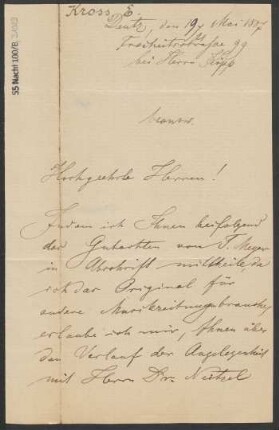 Kross, E.
55 Nachl 100/B
Deutz, den 19/ Mai 1897
Freiheitstrasse 99
bei Herrn Kopp
Hochgeehrte Herren!
Indem ich Ihnen beifolgend
das Gutachten von F. Meyer
in Abschrift mittheile, da
ich das Original für
andere Musikzeitungen brauche,
erlaube ich mir, Ihnen über
den Verlauf der Angelegenheit
mit Herrn Dr. Neitzel